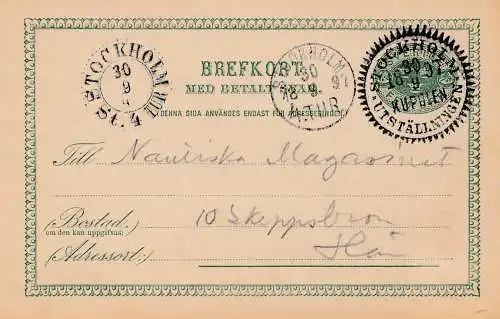 BREFKORT
MED BETALDT SVAR.
(DENNA SIDA ANVÄNDES ENDAST FÖR ADRESSERINGEN)
STOCKHOLM
30
9
St. 4 TUR
STOCKHOLM
30
9
TUR
STOCKHOLM
30
9
KUPOLEN
UTSTÄLLNINGEN
Till Nautiska Magasinet
10 Skeppsbron
(Bostad.
om den kan uppgifvas:
(Adressort:)